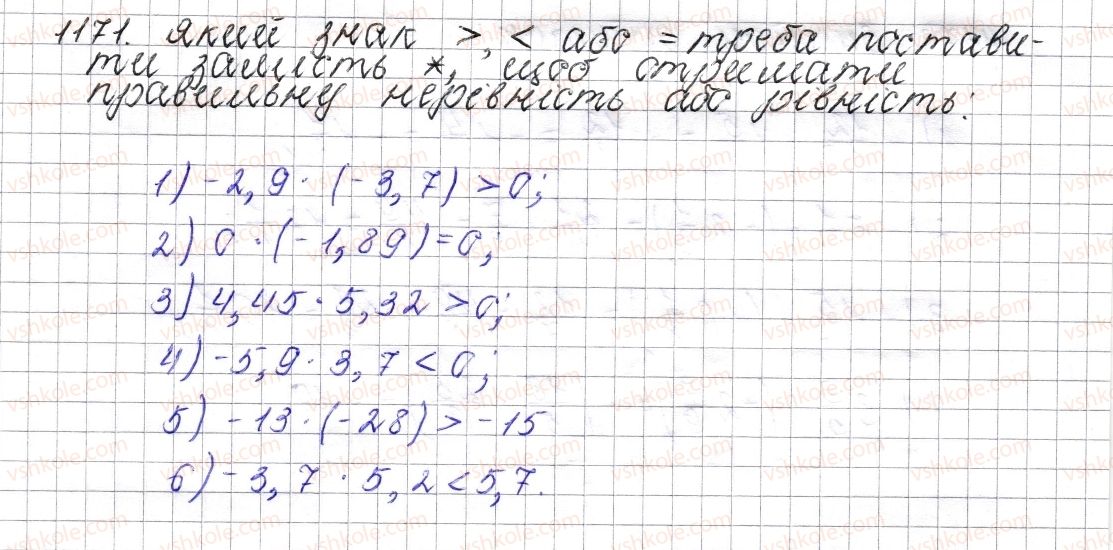 1171. Який знак >, < або = треба постави-
ти замість *, щоб отримати
правильну нерівність або рівність:
1) -2,9 · (-3,7) > 0;
2) 0 · (-1,89) = 0;
3) 4,45 · 5,32 > 0;
4) -5,9 · 3,7 < 0;
5) -13 · (-28) > -15
6) -3,7 · 5,2 < 5,7.